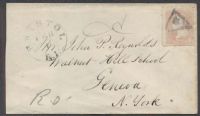 BRISTOL
R.I.
Mr. John P. Reynolds
Walnut Hill School
Geneva
N. York